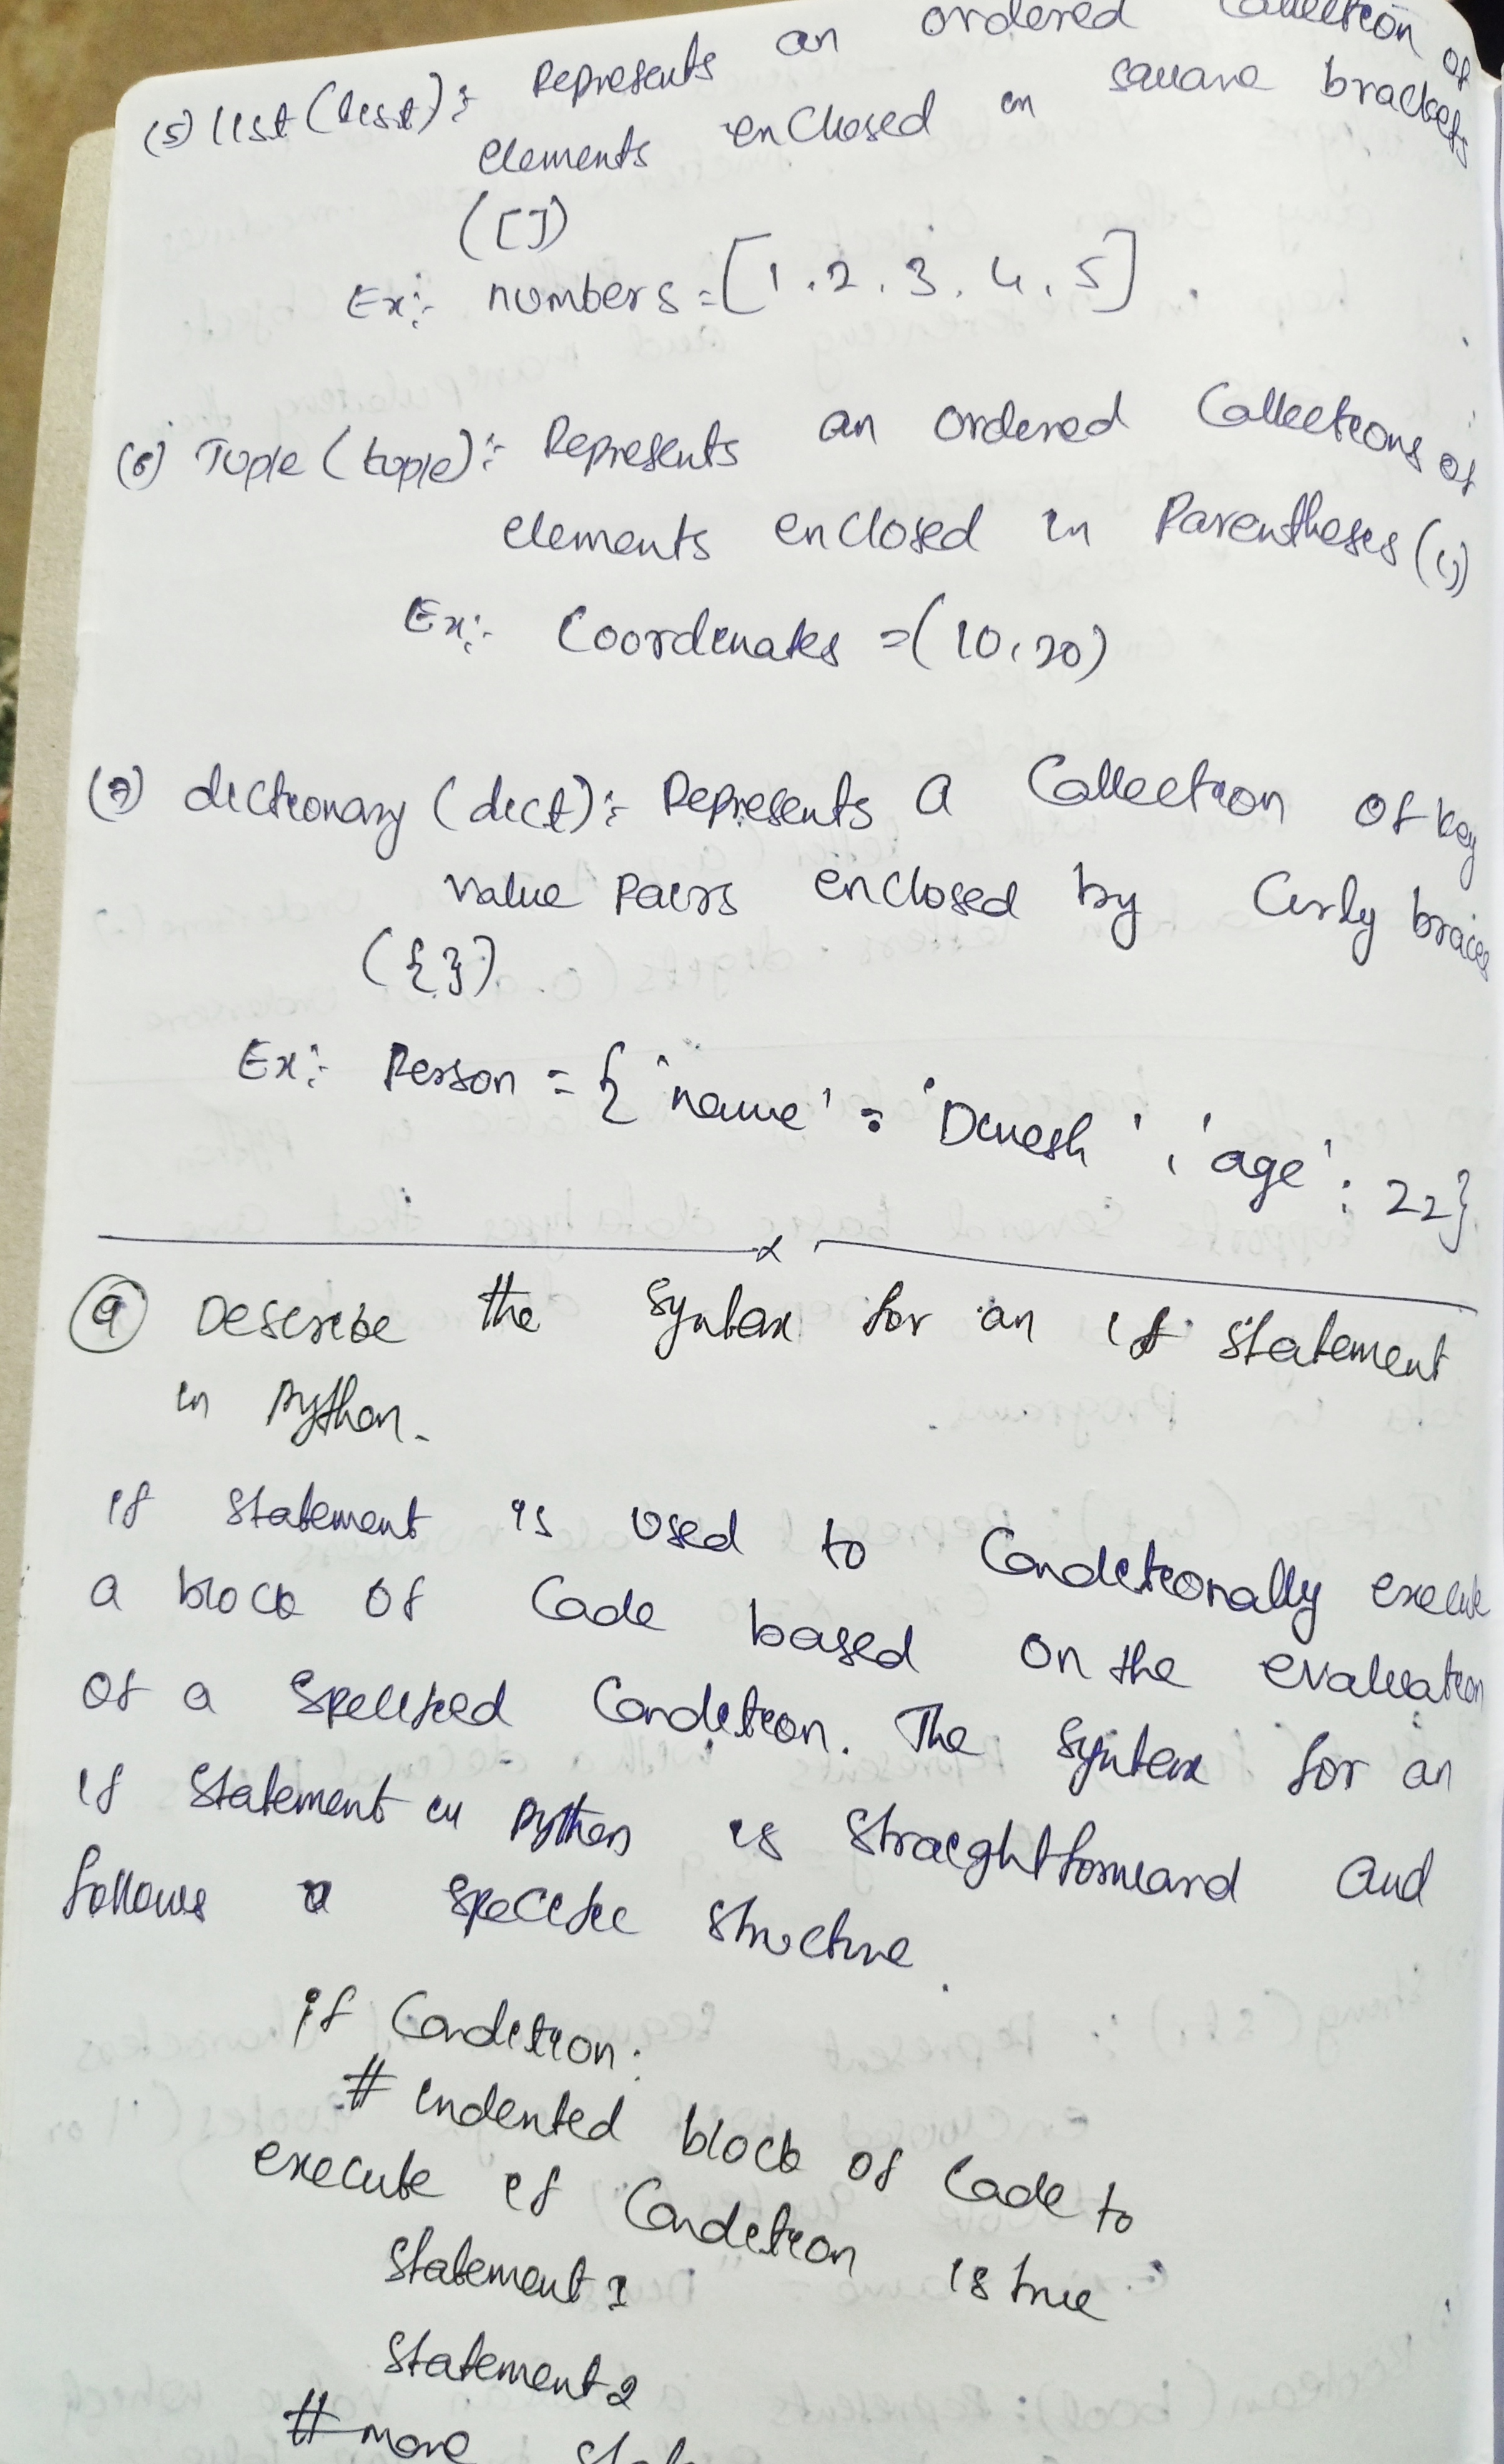 (5) list (list):- Represents an ordered Collection of
elements enclosed in square brackets
([])
Ex:- numbers = [1, 2, 3, 4, 5].
(6) Tuple (tuple):- Represents an ordered Collections of
elements enclosed in Parentheses (())
Ex:- Coordinates = (10, 20)
(7) dictionary (dict):- Represents a Collection of key
value Pairs enclosed by Curly braces
({})
Ex:- Person = {'name' : 'Dinesh', 'age' : 22}
(9) Describe the Syntax for an if statement
in Python.
if statement is used to Conditionally execute
a block of Code based on the evaluation
of a specified Condition. The Syntax for an
if statement in python is straightforward and
follows a specific structure.
if Condition:
# indented block of Code to
execute if Condition is true
statement 1
statement 2
# more